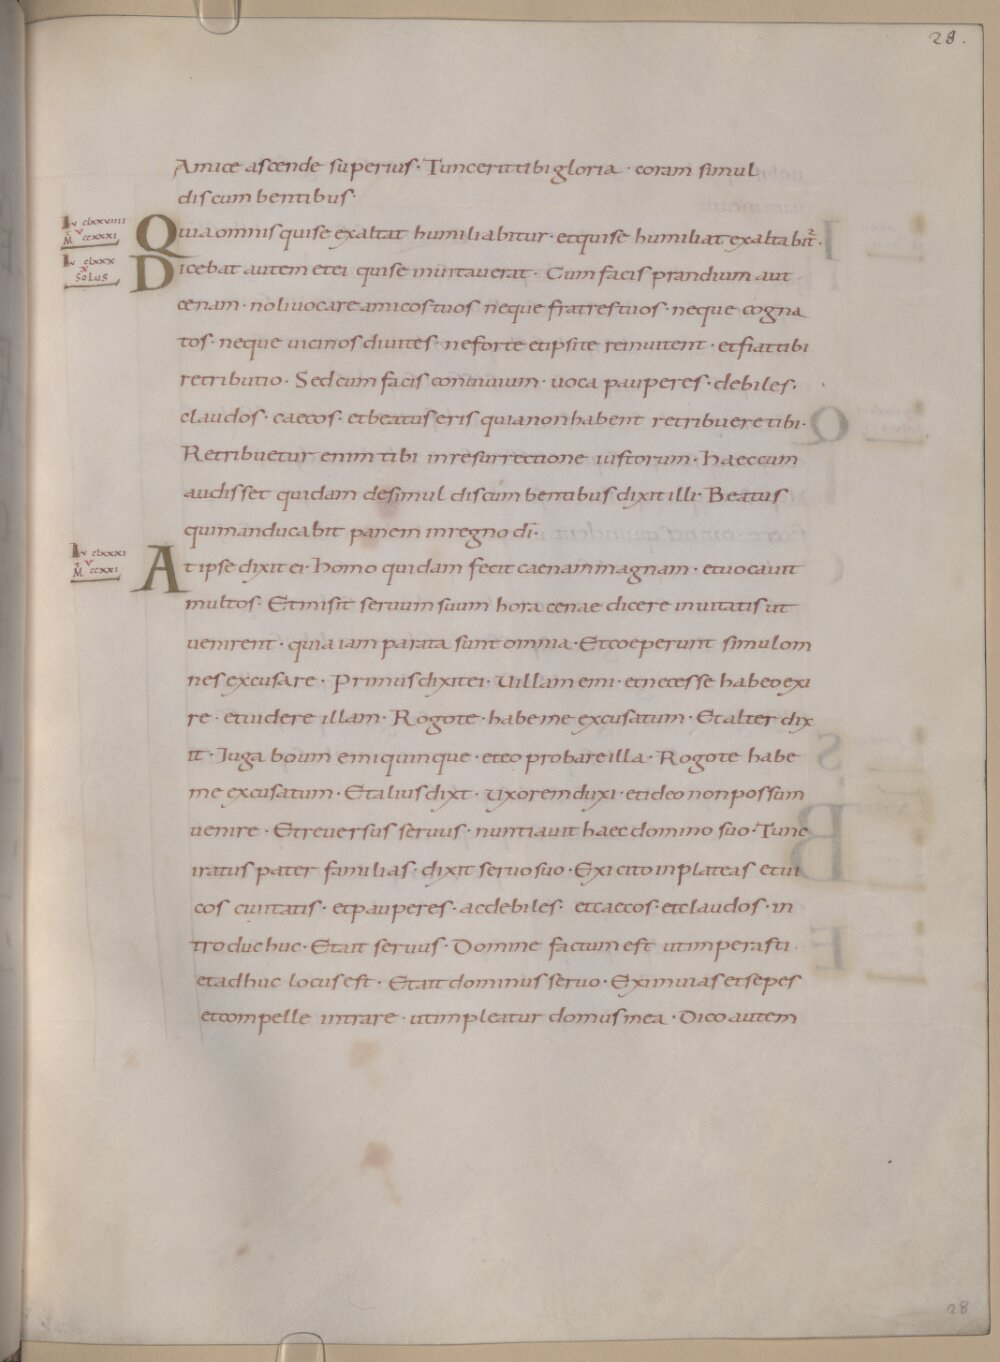 28.
Amice ascende superius · Tunc erit tibi gloria · coram simul
discumbentibus·
Lv clxxviiii
M ccxxxi
Quia omnis qui se exaltat humiliabitur · et qui se humiliat exaltabit̄ ·
Lv clxxx
x
SOLUS
Dicebat autem et ei qui se inuitauerat · Cum facis prandium aut
cenam · noli uocare amicos tuos neque fratres tuos · neque cogna
tos · neque uicinos diuites · ne forte et ipsi te reinuitent · et fiat tibi
retributio · Sed cum facis conuiuium · uoca pauperes · debiles·
claudos · caecos · et beatus eris quia non habent retribuere tibi·
Retribuetur enim tibi in resurrectione iustorum · Haec cum
audisset quidam de simul discumbentibus dixit illi · Beatus
qui manducabit panem in regno di·
Lv clxxxi
v
M ccxxi
At ipse dixit ei · Homo quidam fecit caenam magnam · et uocauit
multos · Et misit seruum suum hora cenae dicere inuitatis ut
uenirent · quia iam parata sunt omnia · Et coeperunt simul om
nes excusare · Primus dixit ei · Uillam emi · et necesse habeo exi
re · et uidere illam · Rogo te · habe me excusatum · Et alter dix
it · Iuga boum emi quinque · et eo probare illa · Rogo te habe
me excusatum · Et alius dixt · uxorem duxi · et ideo non possum
uenire · Et reuersus seruus · nuntiauit haec domino suo · Tunc
iratus pater familias · dixit seruo suo · Exi cito in plateas et ui
cos ciuitatis · et pauperes · ac debiles · et caecos · et claudos · in
troduc huc · Et ait seruus · Domine factum est ut imperasti ·
et adhuc locus est · Et ait dominus seruo · Exi in uias et sepes
et compelle intrare · ut impleatur domus mea · Dico autem
28